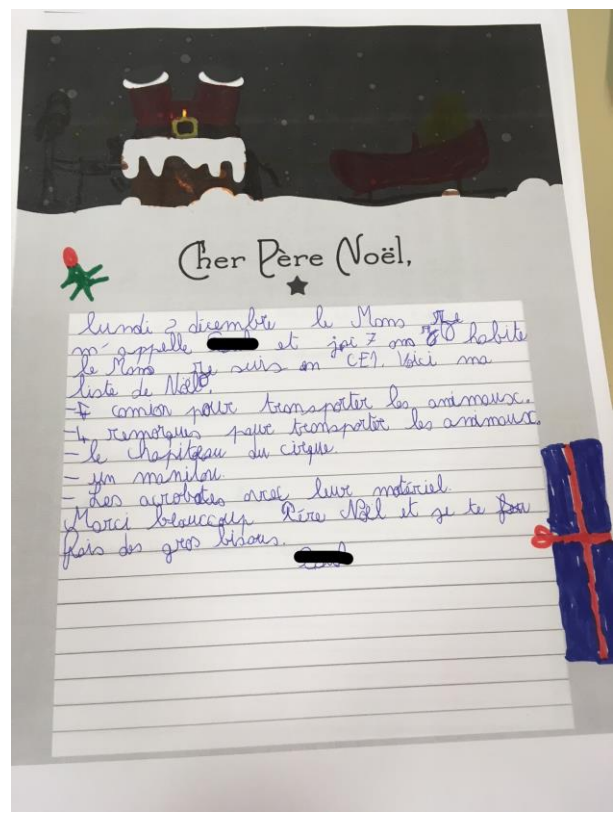 Cher Père Noël,
lundi 2 décembre le Mans Je
m'appelle et jai 7 ans J habite
le Mans Je suis en CE1. Voici ma
liste de Noël.
- camion pour transporter les animaux.
- 4 remorques pour transporter les animaux.
- le chapiteau du cirque.
- un manitou.
- Les acrobates avec leur matériel.
Marci beaucoup Père Nöel et je te
fais des gros bisous.